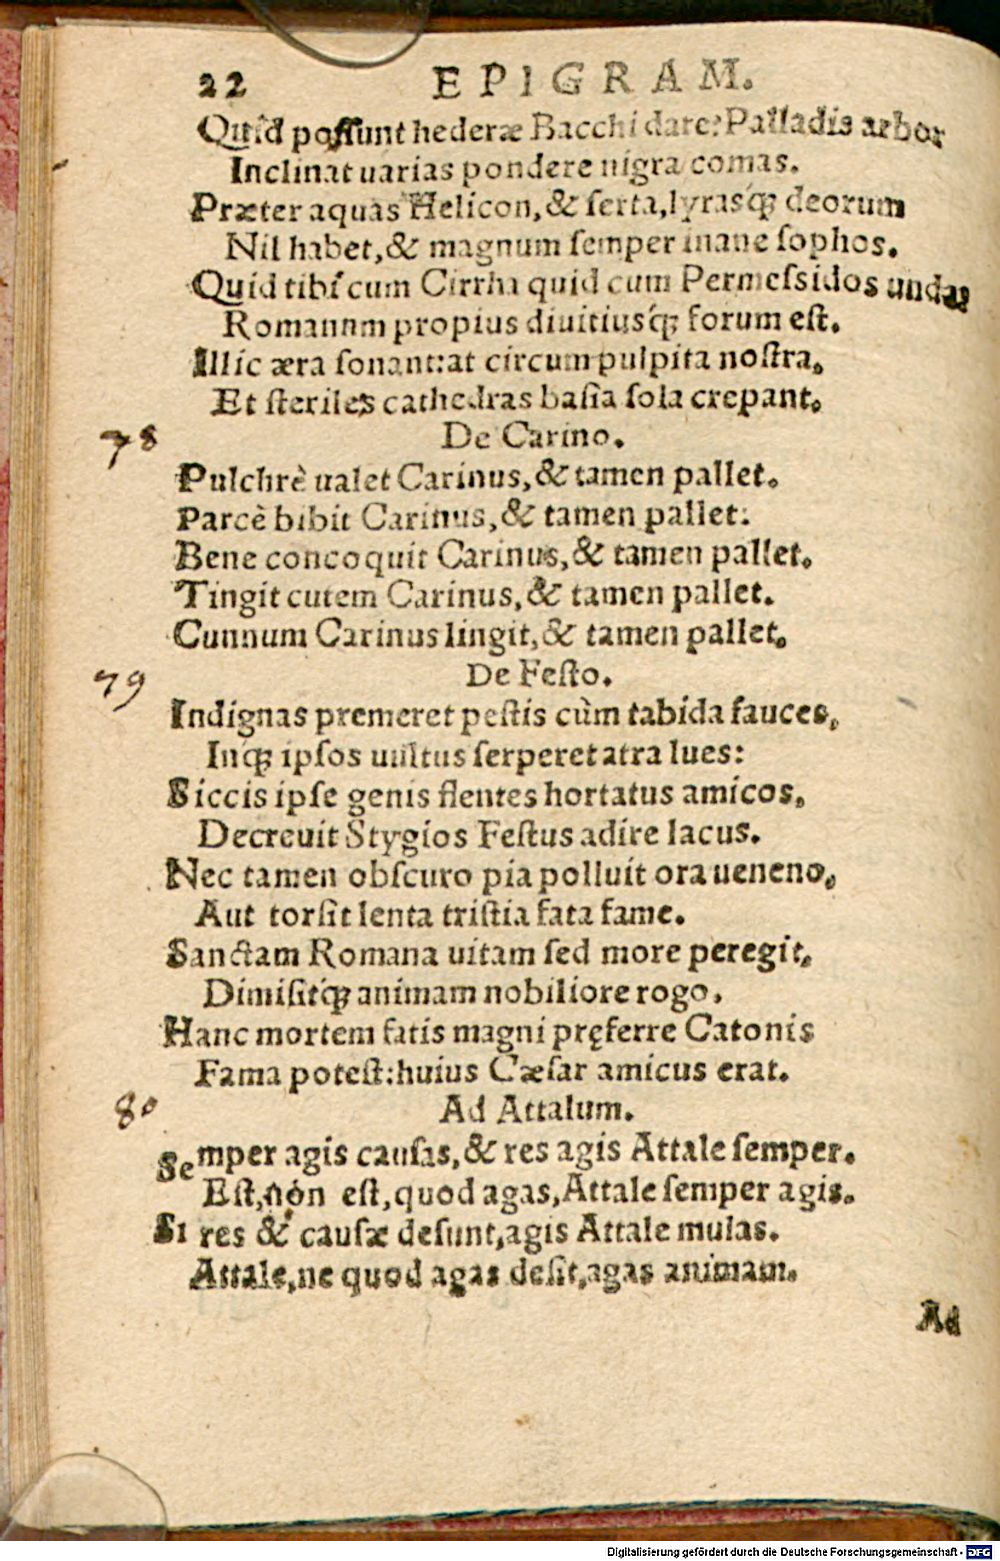 22 EPIGRAM.
Quid possunt hederæ Bacchi dare? Palladis arbor
Inclinat uarias pondere nigra comas.
Præter aquas Helicon, & serta, lyrasq́; deorum
Nil habet, & magnum semper inane sophos.
Quid tibi cum Cirrha quid cum Permessidos undas
Romanum propius diuitiusq́; forum est.
Illic æra sonant: at circum pulpita nostra,
Et steriles cathedras basia sola crepant.
78 De Carino.
Pulchrè ualet Carinus, & tamen pallet.
Parcè bibit Carinus, & tamen pallet.
Bene concoquit Carinus, & tamen pallet.
Tingit cutem Carinus, & tamen pallet.
Cunnum Carinus lingit, & tamen pallet.
79 De Festo.
Indignas premeret pestis cùm tabida fauces,
Inq́; ipsos uultus serperet atra lues:
Siccis ipse genis flentes hortatus amicos,
Decreuit Stygios Festus adire lacus.
Nec tamen obscuro pia polluit ora ueneno,
Aut torsit lenta tristia fata fame.
Sanctam Romana uitam sed more peregit,
Dimisitq́; animam nobiliore rogo.
Hanc mortem fatis magni pręferre Catonis
Fama potest: huius Cæsar amicus erat.
80 Ad Attalum.
Semper agis causas, & res agis Attale semper.
Est, nõn est, quod agas, Attale semper agis.
Si res & causæ desunt, agis Attale mulas.
Attale, ne quod agas desit, agas animam.
Ad
Digitalisierung gefördert durch die Deutsche Forschungsgemeinschaft - DFG